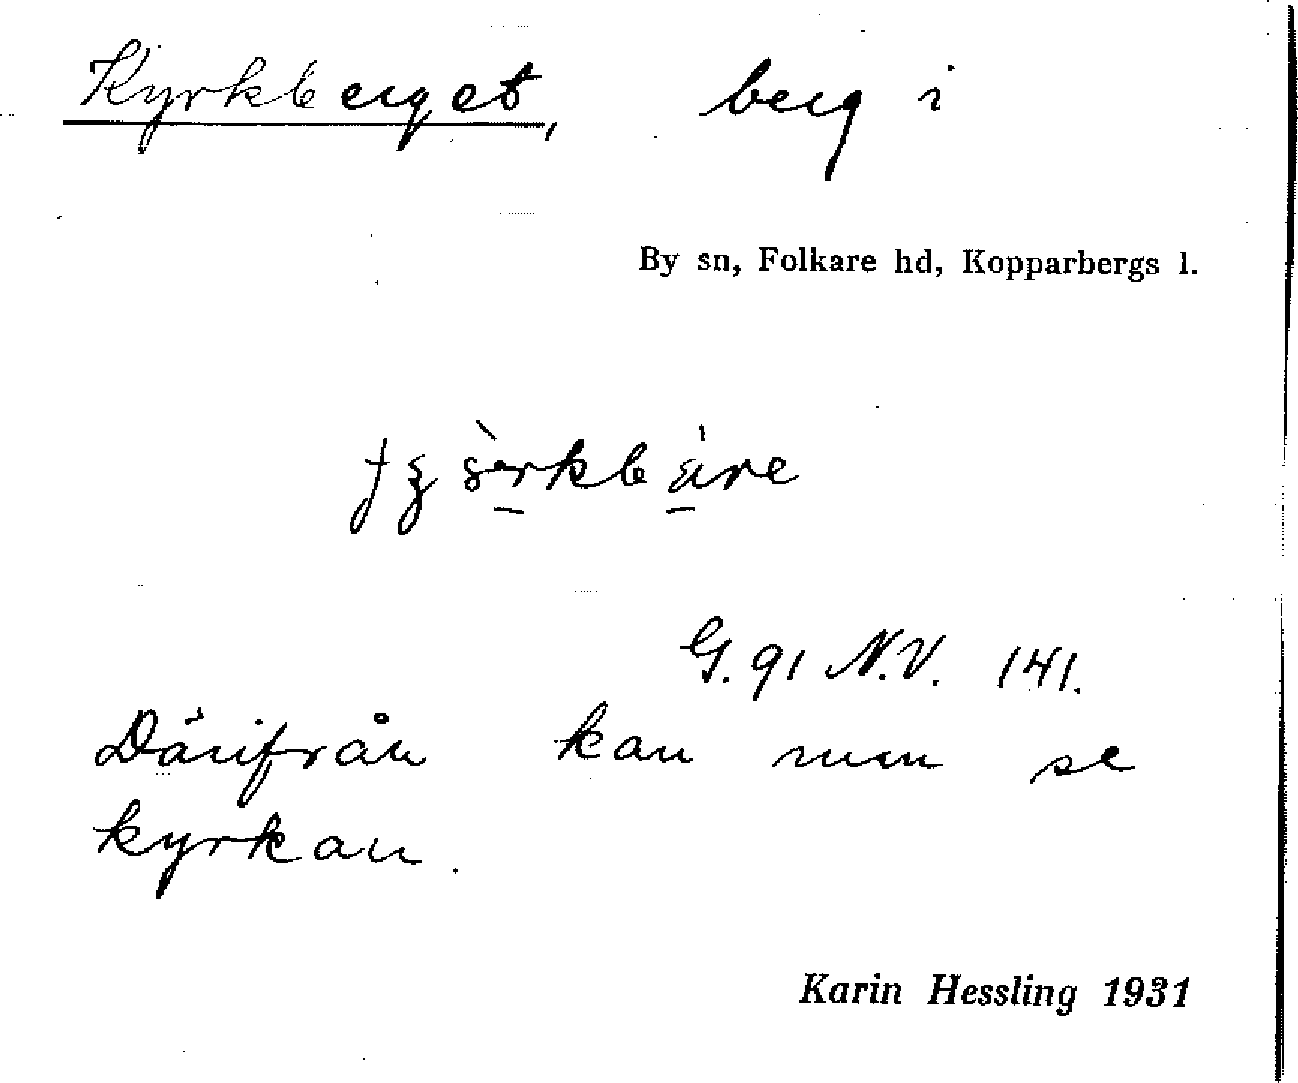 Kyrkberget, berg i
By sn, Folkare hd, Kopparbergs l.
G. 91 N.V. 141.
Därifrån kan man se
kyrkan.
Karin Hessling 1931